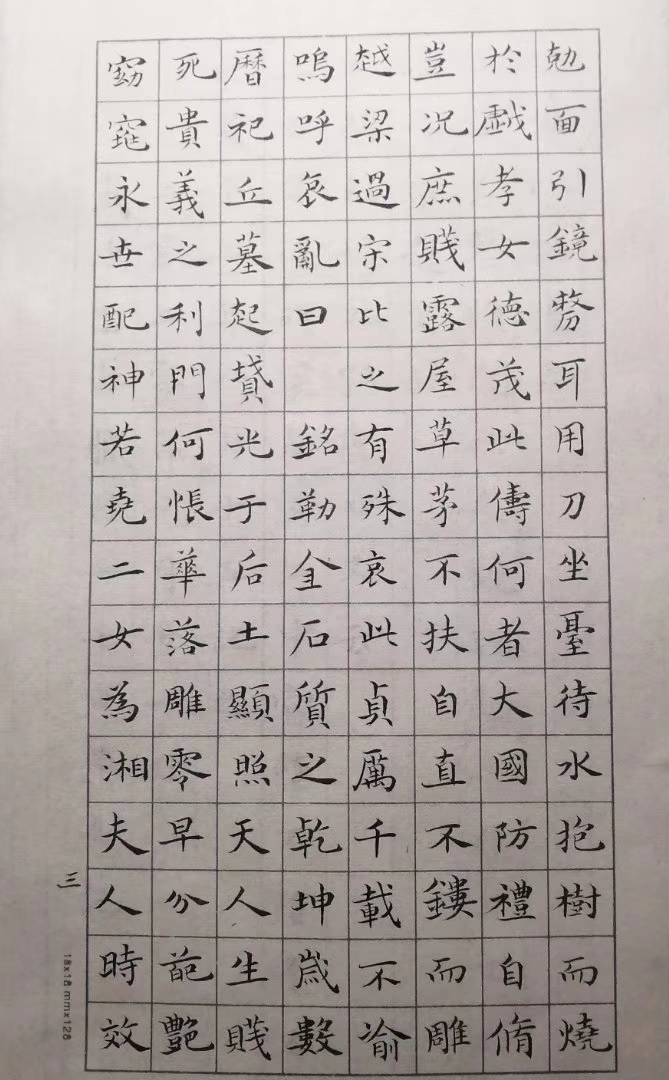 勉面引鏡剺耳用刀坐臺待水抱樹而燒
於戲孝女德茂此儔何者大國防禮自脩
豈况庶賤露屋草茅不扶自直不鏤而雕
越梁過宋比之有殊哀此貞厲千載不渝
嗚呼哀亂曰 銘勒金石質之乾坤歲數
曆祀丘墓起墳光于后土顯照天人生賤
死貴義之利門何悵華落雕零早分葩艷
窈窕永世配神若堯二女為湘夫人時效
三
18x18mmx128